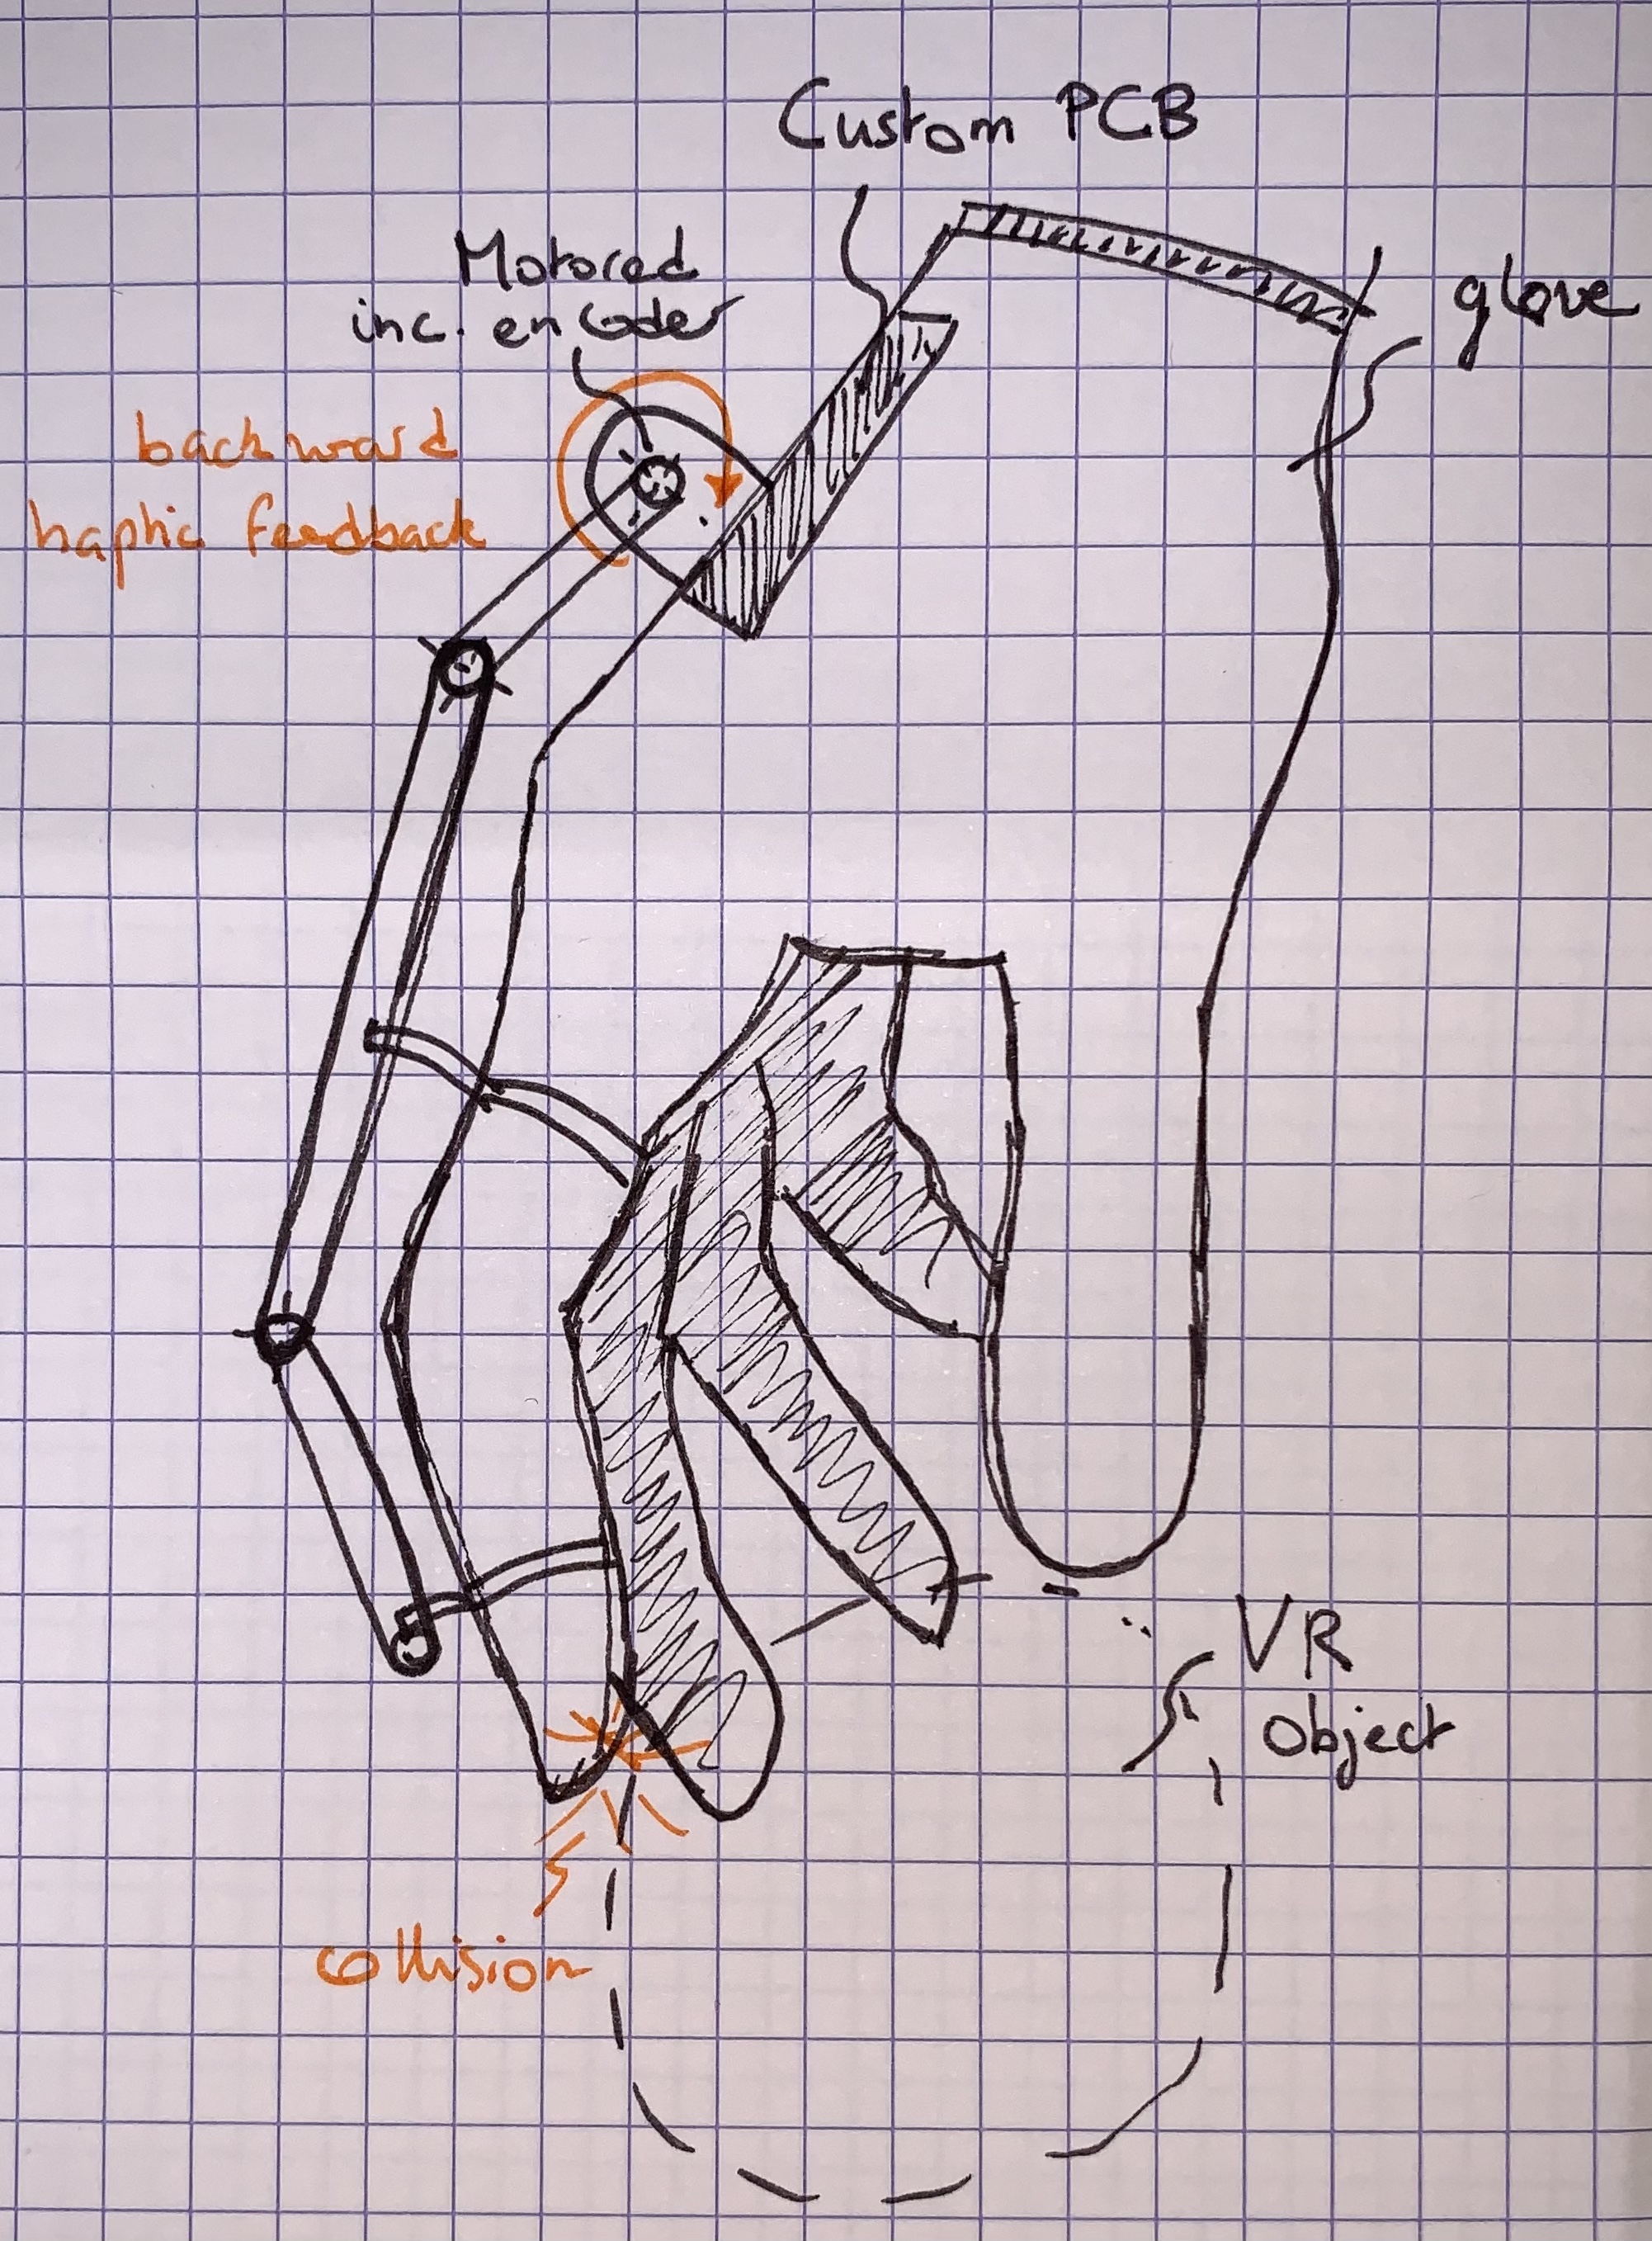 Custom PCB
Motored
inc. encoder
glove
backward
haptic feedback
VR
Object
collision